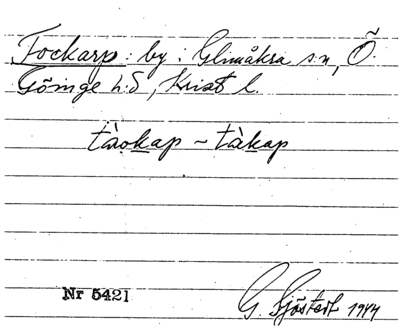 Tockarp: by i Glimåkra s:n, Ö.
Göinge h:d, Krist l.
tàokap ~ tàkap
Nr 5421
G. Sjöstedt 1944